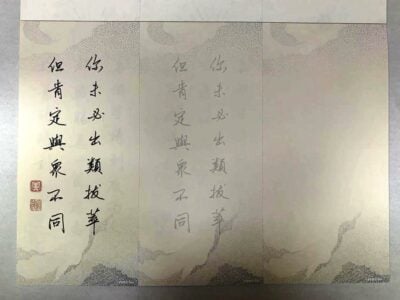 你未必出類拔萃
但肯定與衆不同
你未必出類拔萃
但肯定與衆不同